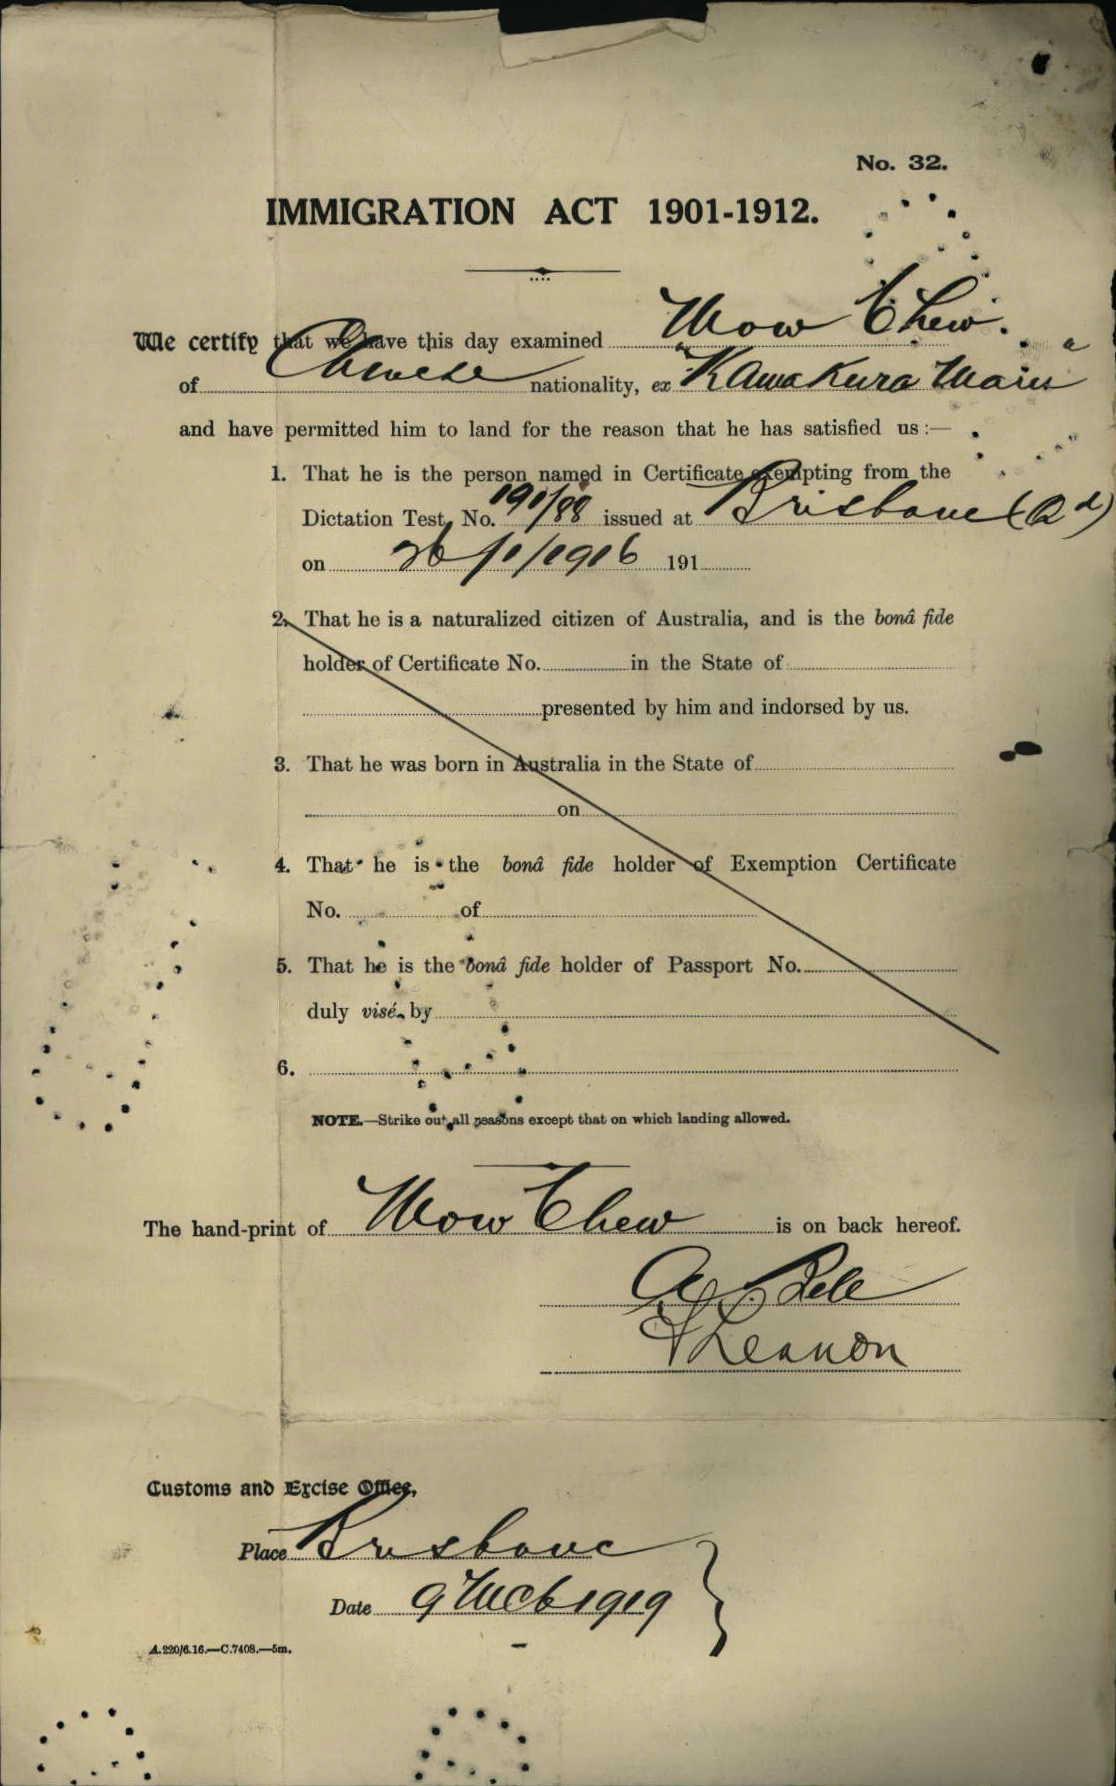 No. 32.
IMMIGRATION ACT 1901-1912.
We certify that we have this day examined Mow Chew.
of Chinese nationality, ex Kawakura Maru
and have permitted him to land for the reason that he has satisfied us :—
1. That he is the person named in Certificate exempting from the
Dictation Test, No. 191/88 issued at Brisbane (Qd)
on 26/1/1916 191
2. That he is a naturalized citizen of Australia, and is the bonâ fide
holder of Certificate No. in the State of
presented by him and indorsed by us.
3. That he was born in Australia in the State of
on
4. That he is the bonâ fide holder of Exemption Certificate
No. of
5. That he is the bonâ fide holder of Passport No.
duly visé by
6.
NOTE.—Strike out all reasons except that on which landing allowed.
The hand-print of Mow Chew is on back hereof.
Customs and Excise Office,
Place Brisbane
Date 9 Mch 1919
A.220/6.16.—C.7408.—5m.